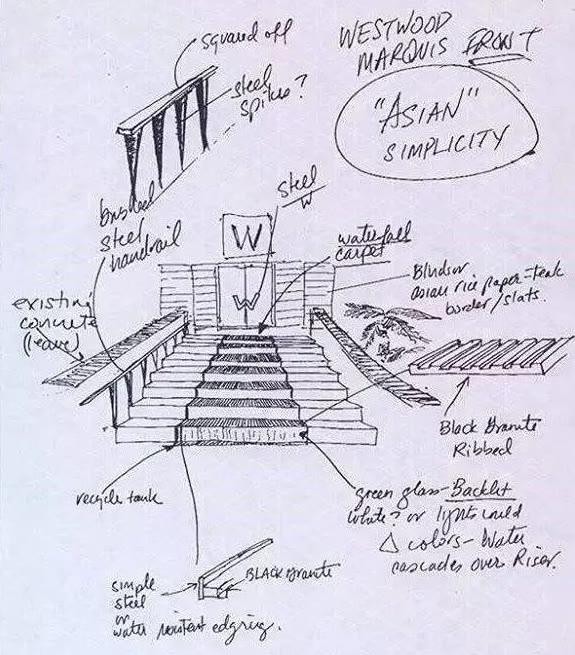 squared off
WESTWOOD
MARQUIS FRONT
steel
spikes?
"ASIAN"
SIMPLICITY
brushed
steel
handrail
steel
W
W
W
waterfall
carpet
Blinds or
asian rice paper-teak
border/slats.
existing
concrete
(leave)
Black Granite
Ribbed
recycle tank
green glass-Backlit
white? or lights could
Δ colors-Water
cascades over Riser.
BLACK Granite
simple
steel
or
water resistent edging.